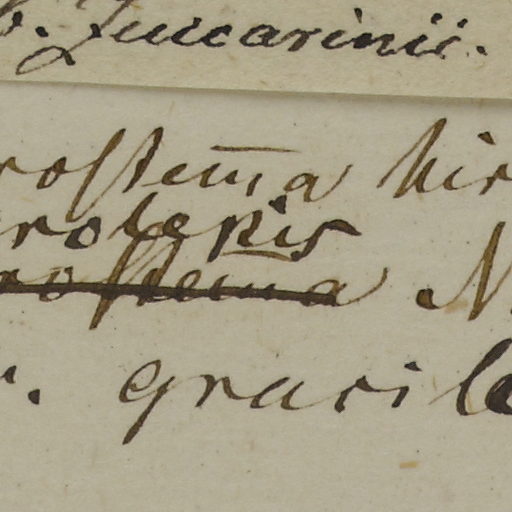 b. Zuccarinii.
rostem̄a hir
rolepis
rostem̄a N.
r. gracile